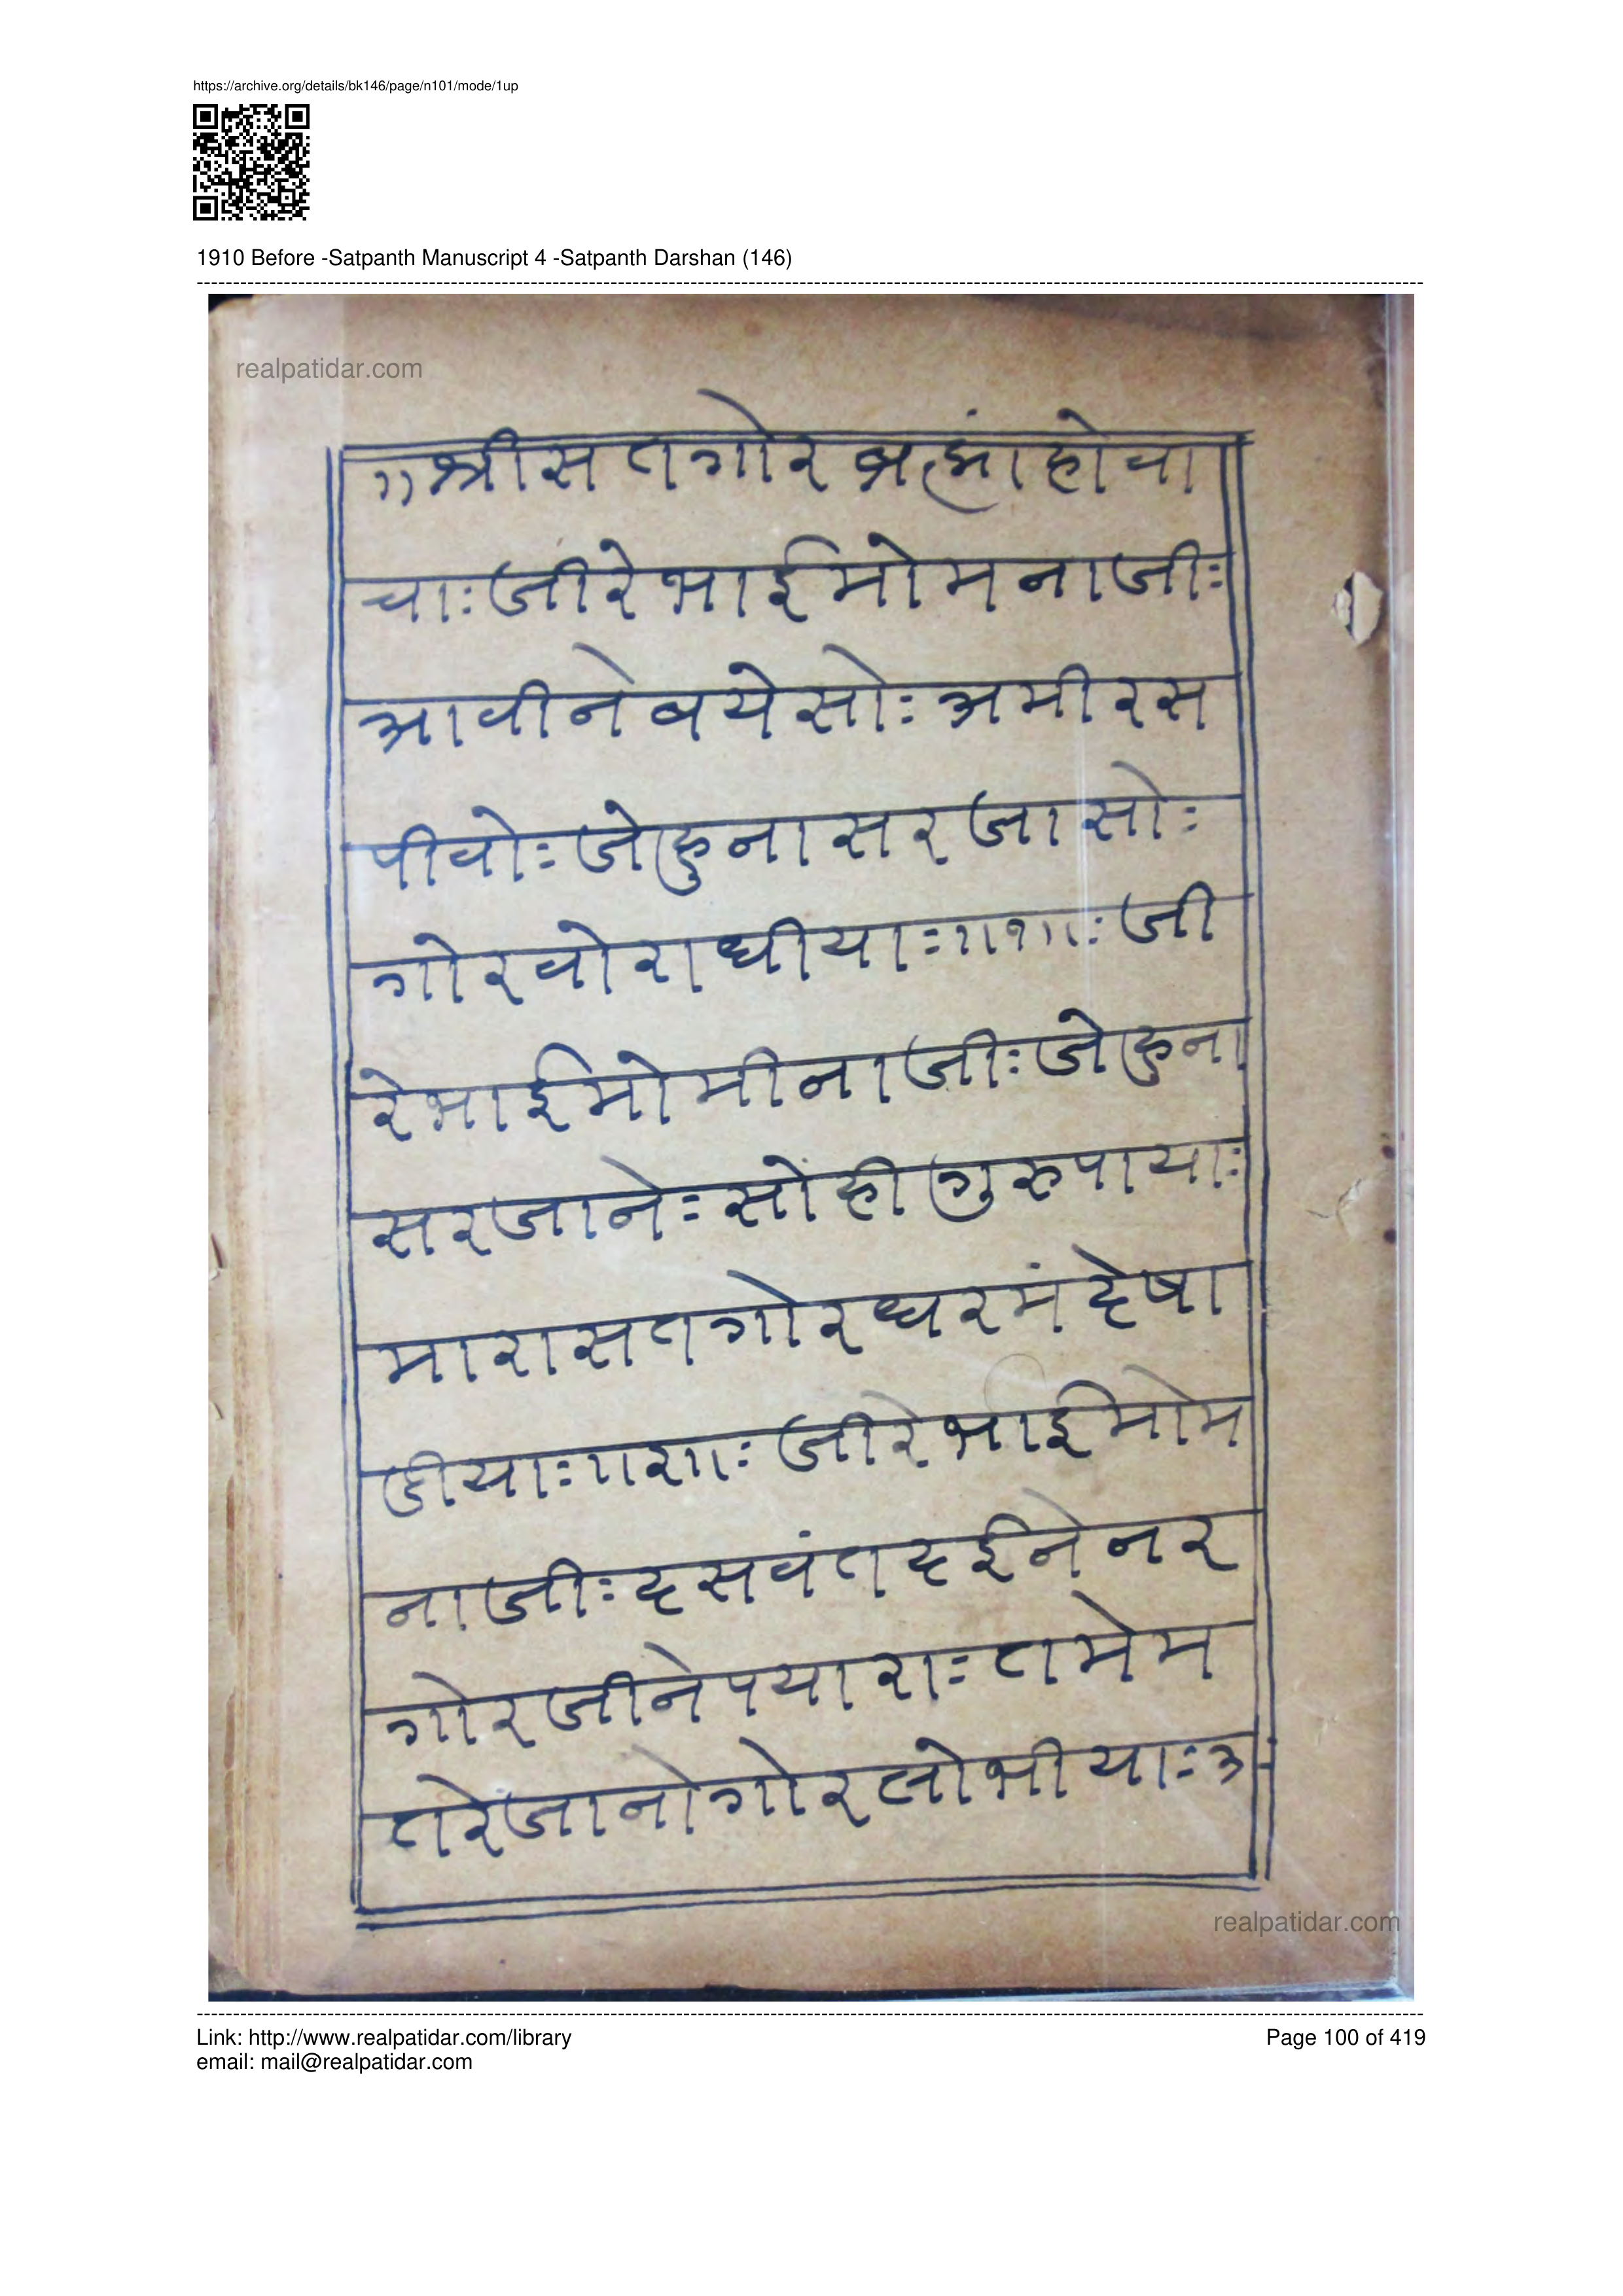 https://archive.org/details/bk146/page/n101/mode/1up
1910 Before -Satpanth Manuscript 4 -Satpanth Darshan (146)
realpatidar.com
॥श्रीसतगोरब्रह्मांहोवा
चाः जीरेभाईमोमनाजीः
आवीनेबयेसोः अमीरस
पीवोः जेहुनासरजासोः
गोरवोराधीयाः ॥१॥ः जी
रेभाईमोमीनाजीः जेहुना
सरजानेः सोहीगुरुपायाः
मारासतगोरधरमंदेषा
डीयाः ॥२॥ः जीरेभाईमोम
नाजीः दसवंतदईनेनर
गोरजीनेपयाराः तमेम
तरेजानोगोरलोभीयाः अ
realpatidar.com
Link: http://www.realpatidar.com/library
Page 100 of 419
email: mail@realpatidar.com